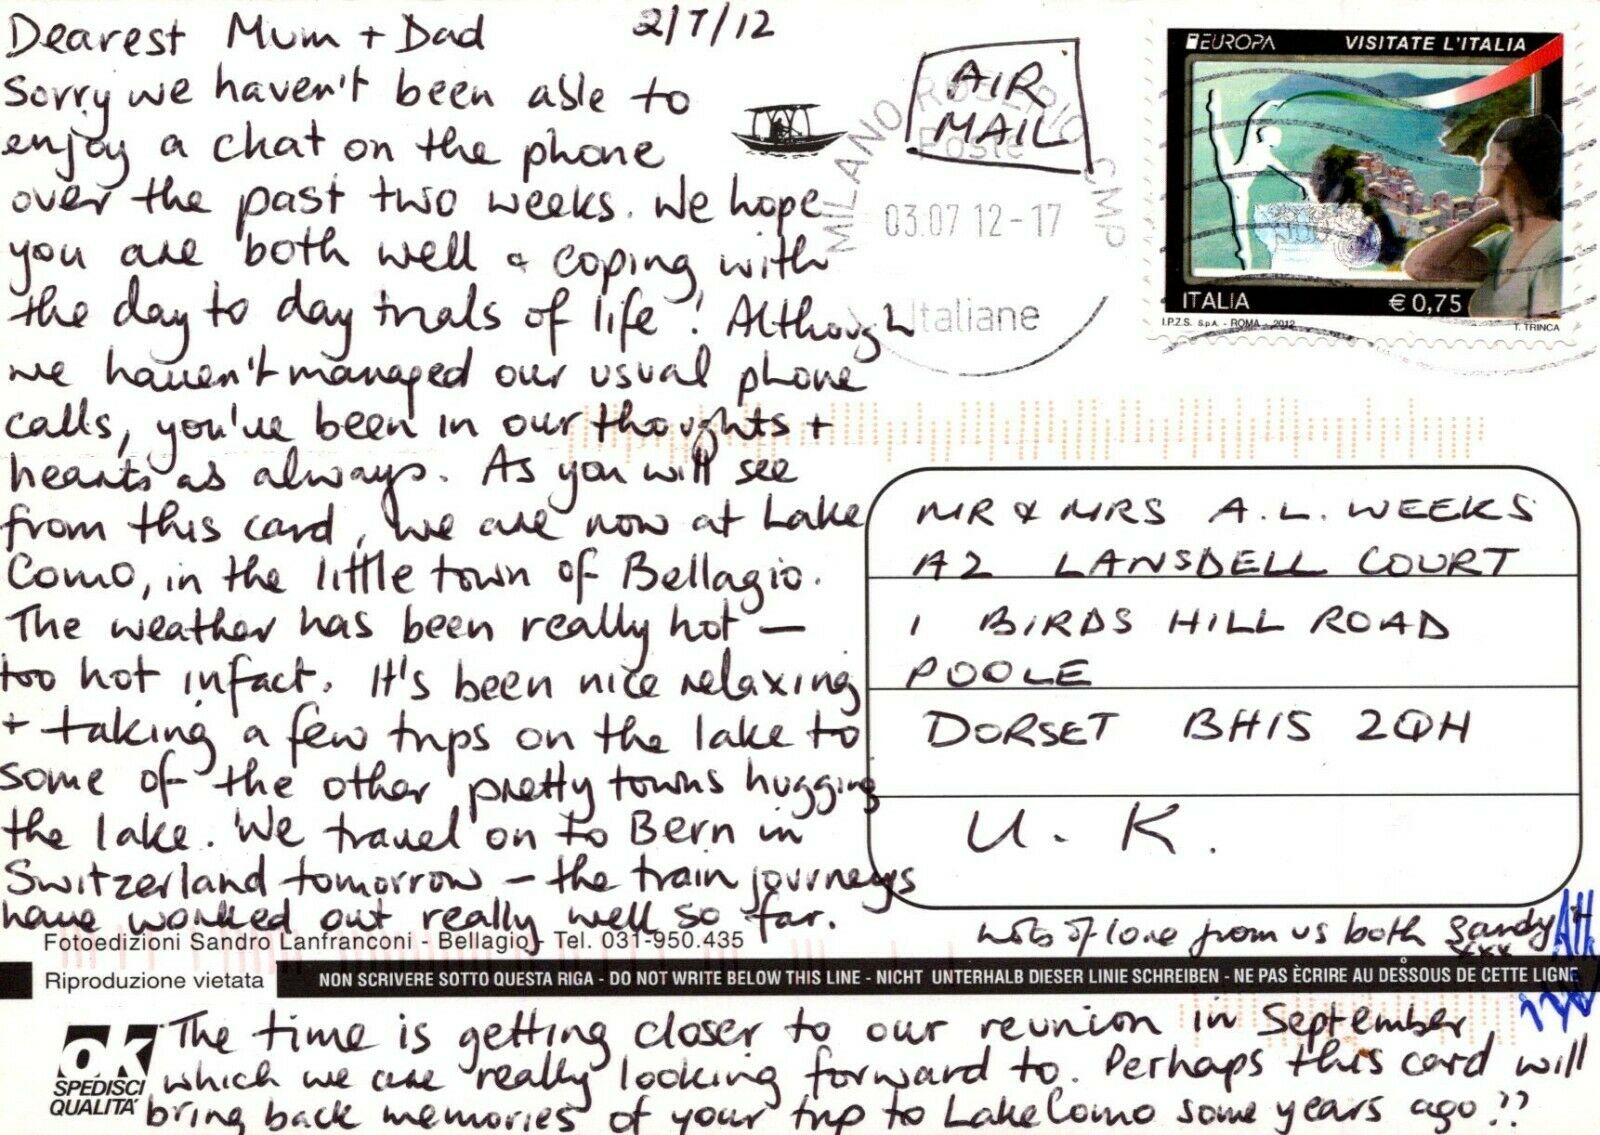 Dearest Mum + Dad
2/7/12
Sorry we haven't been able to
enjoy a chat on the phone
over the past two weeks. We hope
you are both well & coping with
the day to day trials of life! Although
we haven't managed our usual phone
calls, you've been in our thoughts +
hearts as always. As you will see
from this card, we are now at Lake
Como, in the little town of Bellagio.
The weather has been really hot —
too hot infact. It's been nice relaxing
+ taking a few trips on the lake to
some of the other pretty towns hugging
the lake. We travel on to Bern in
Switzerland tomorrow – the train journeys
have worked out really well so far.
The time is getting closer to our reunion in September,
which we are really looking forward to. Perhaps this card will
bring back memories of your trip to Lake Como some years ago!??
Lots of love from us both Sandy
xxx
AIR
MAIL
MILANO ROSERIO CMP
Poste
03.07 12-17
Italiane
EUROPA VISITATE L'ITALIA
ITALIA €0,75
I.P.Z.S. S.p.A. - ROMA - 2012 T. TRINCA
MR & MRS A.L. WEEKS
A2 LANSDELL COURT
1 BIRDS HILL ROAD
POOLE
DORSET BH15 2QH
U.K.
Fotoedizioni Sandro Lanfranconi - Bellagio - Tel. 031-950.435
Riproduzione vietata
NON SCRIVERE SOTTO QUESTA RIGA - DO NOT WRITE BELOW THIS LINE - NICHT UNTERHALB DIESER LINIE SCHREIBEN - NE PAS ÈCRIRE AU DESSOUS DE CETTE LIGNE
OK
SPEDISCI
QUALITA'